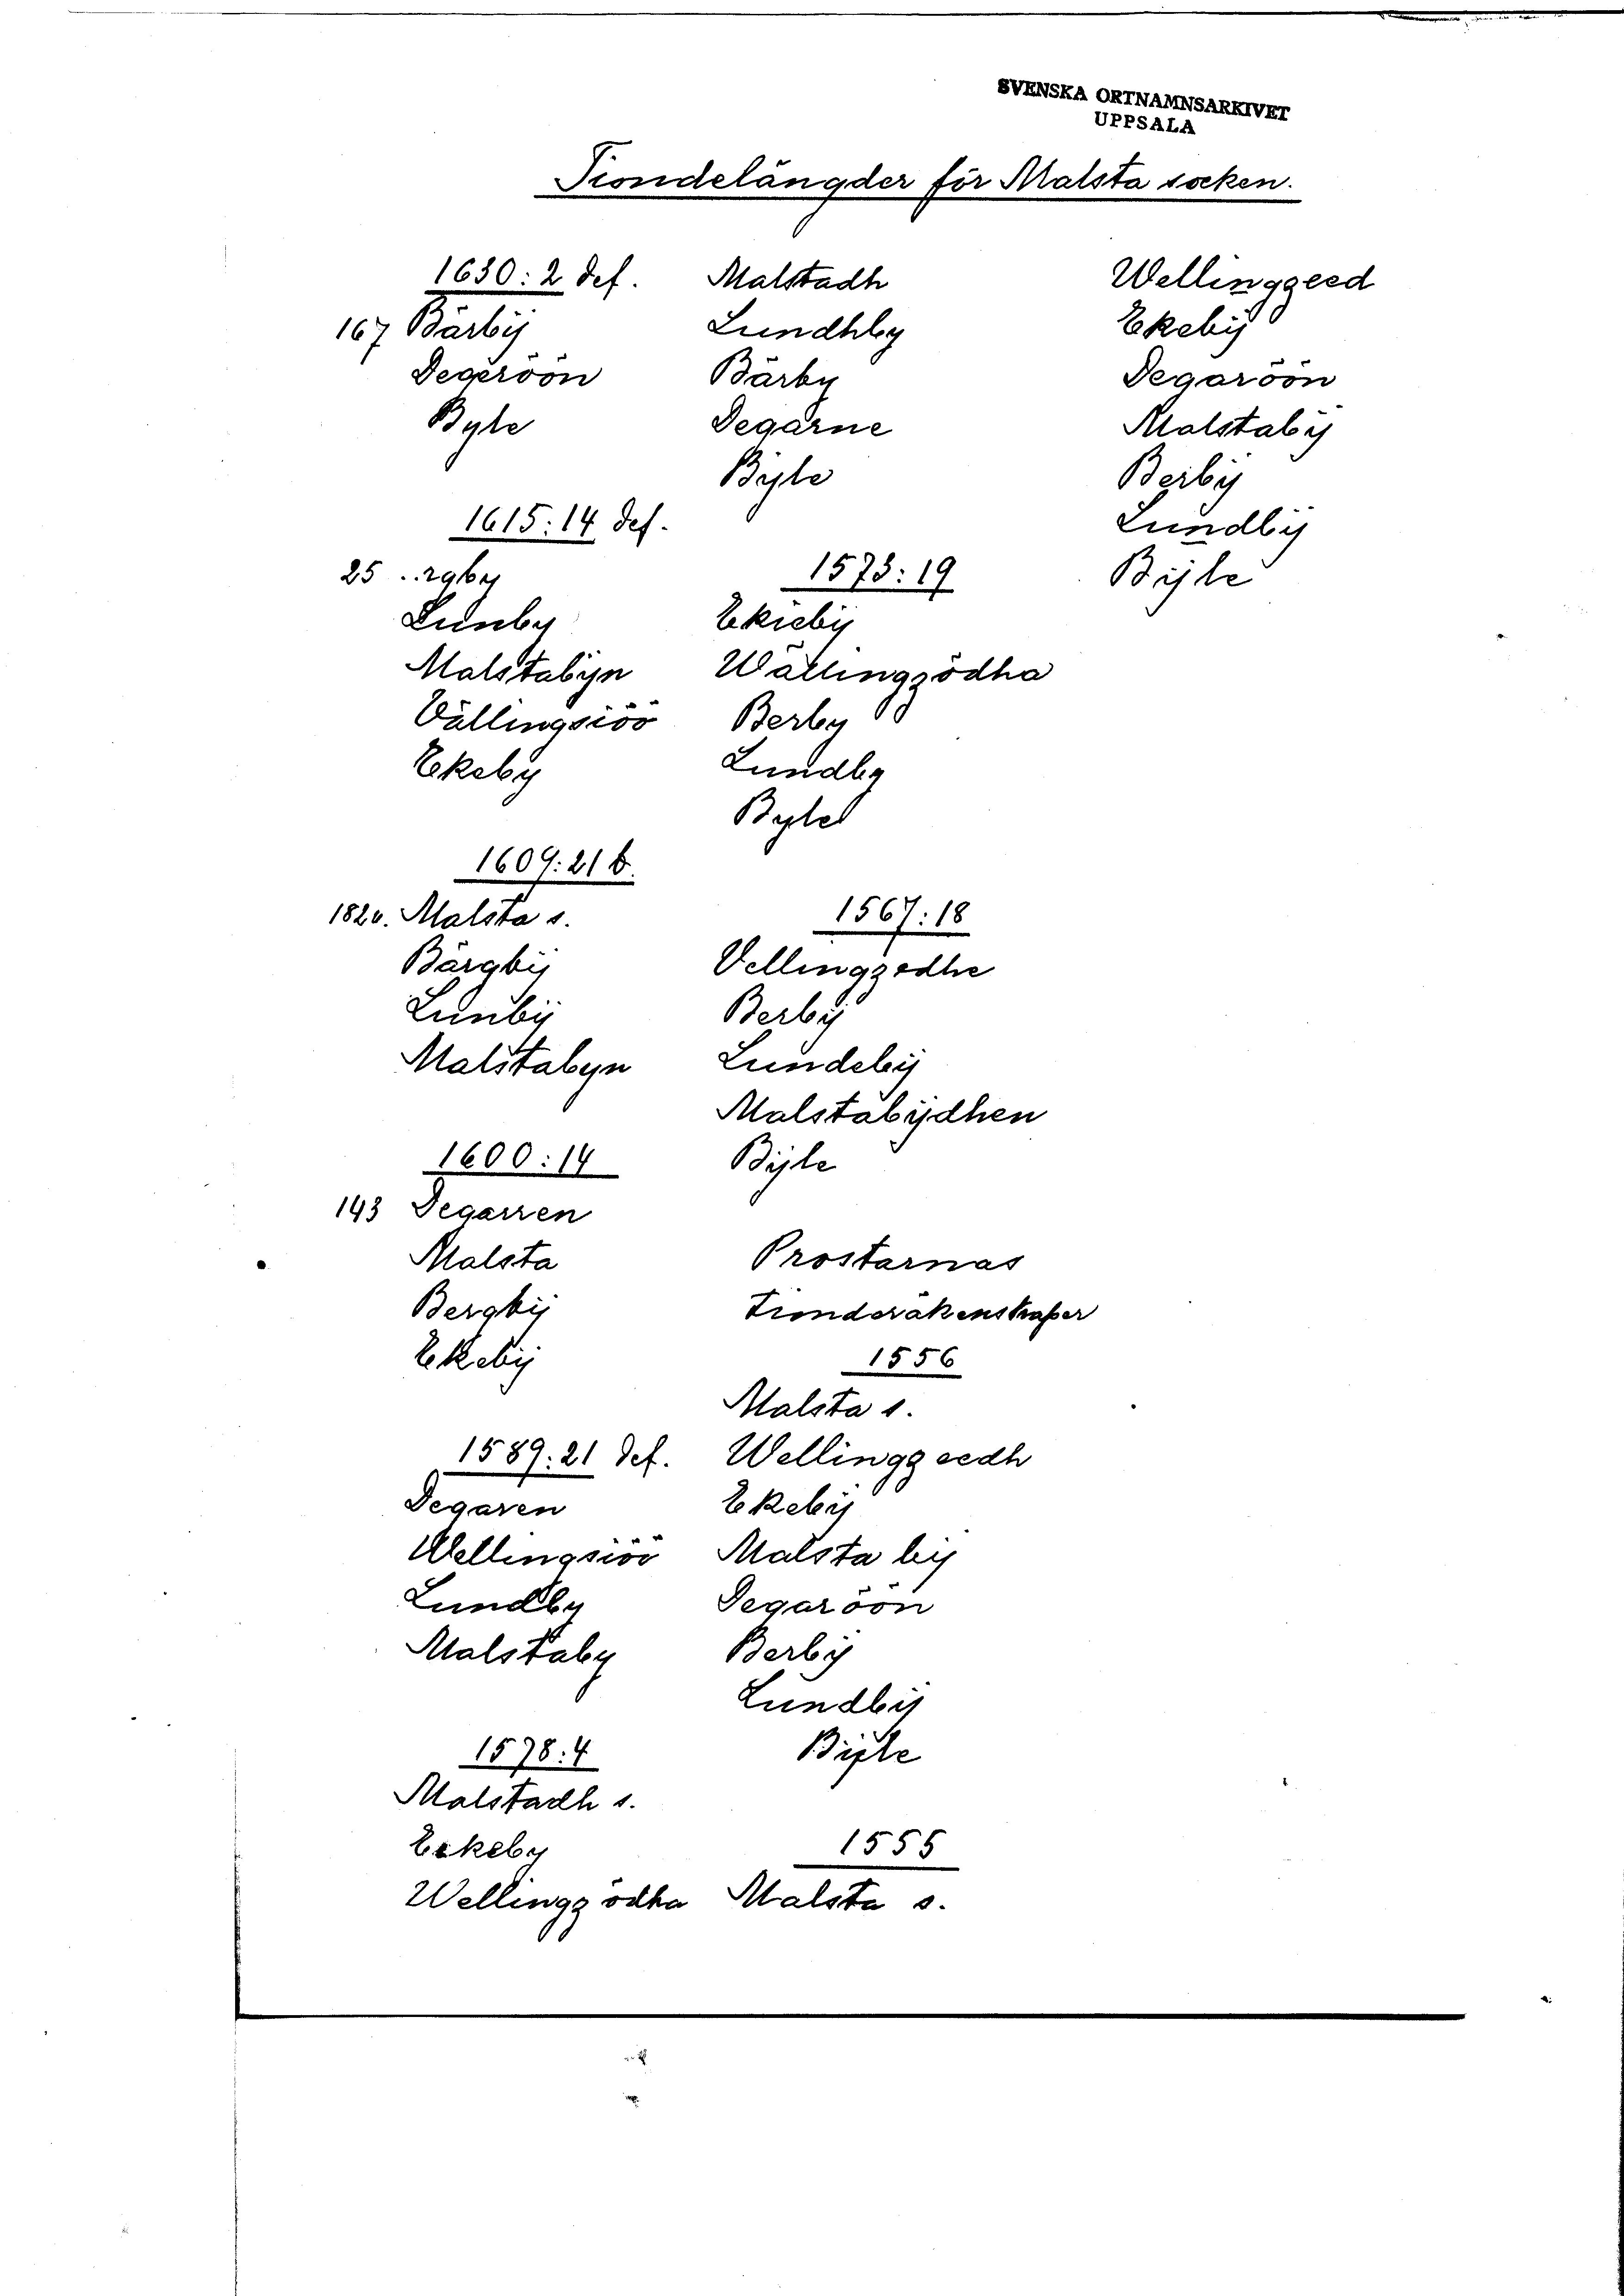 SVENSKA ORTNAMNSARKIVET
UPPSALA
Tiondelängder för Malsta socken.
1630: 2 def.
167 Bärbÿ
Degeröön
Byle
1615: 14 def.
25 ..rgby
Lunby
Malstabÿn
Vällingsiöö
Ekeby
1609: 21 b.
182v. Malsta s.
Bärgbÿ
Lunbÿ
Malstabyn
1600: 14
143 Degarren
Malsta
Bergbÿ
Ekebÿ
1589: 21 def.
Degaren
Wellingsiöö
Lundby
Malstaby
1578: 4
Malstadh s.
Eekeby
Wellingzödha
Malstadh
Lundhby
Bärby
Degärne
Bÿle
1573: 19
Ekiebÿ
Wällingzödha
Berby
Lundby
Byle
1567: 18
Vellingzedhe
Berbÿ
Lundebÿ
Malstabÿdhen
Bÿle
Prostarnas
Tionderäkenskaper
1556
Malsta s.
Wellingzeedh
Ekebÿ
Malsta bÿ
Degaröön
Berbÿ
Lundbÿ
Bÿle
1555
Malsta s.
Wellingzeed
Ekebÿ
Degaröön
Malstabÿ
Berbÿ
Lundbÿ
Bÿle